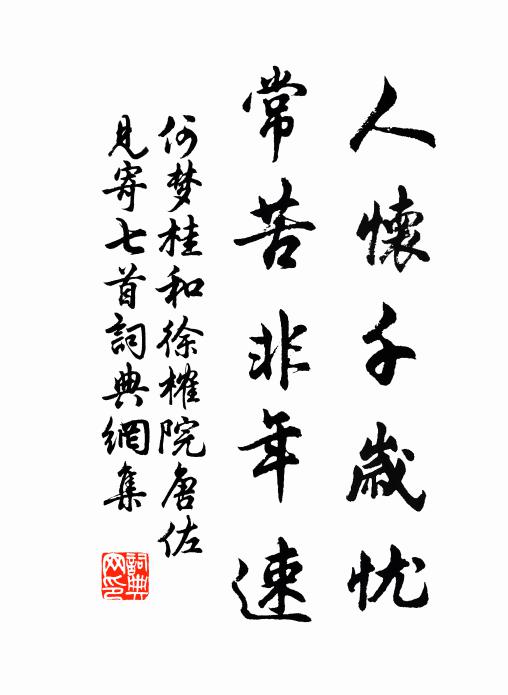 人懷千歲忧
常苦非年速
何梦桂和徐榷院唐佐
見寄七首詞典網集
詞典网印